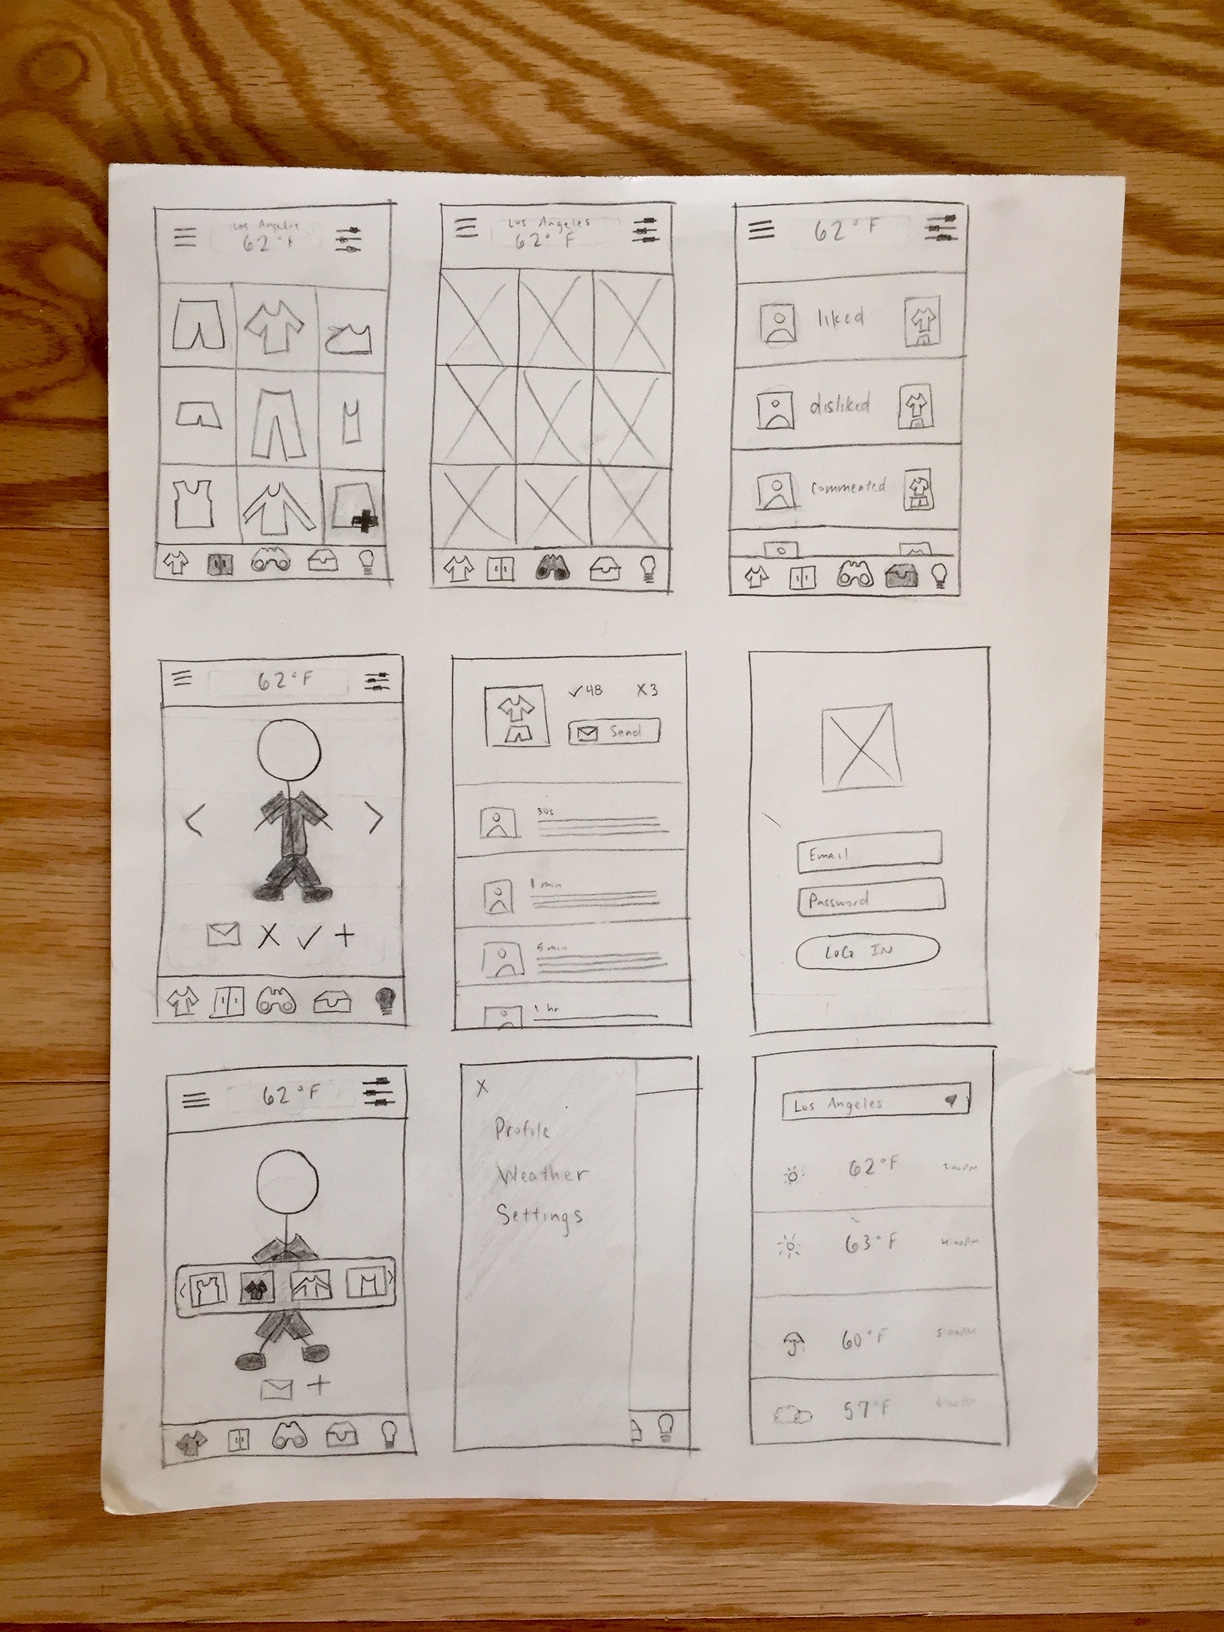 Los Angeles
62°F
Los Angeles
62°F
62°F
liked
disliked
commented
62°F
✓48 X3
Send
30s
1 min
5 min
1 hr
Email
Password
LOG IN
62°F
X
Profile
Weather
Settings
Los Angeles
62°F 3:00PM
63°F 4:00PM
60°F 5:00PM
57°F